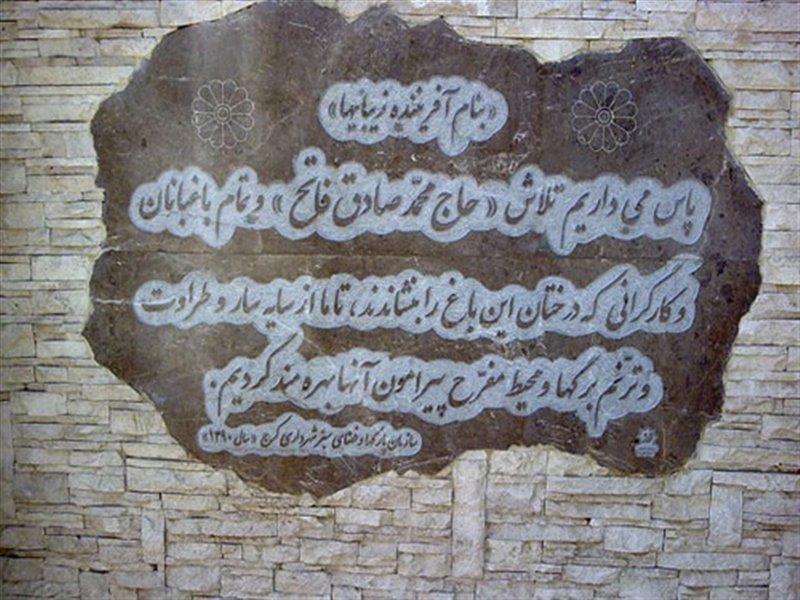 «بنام آفریننده زیبائیها»
پاس می داریم تلاش «حاج محمّد صادق فاتح» و تمام باغبانان
و کارگرانی که درختان این باغ را بنشاندند، تا ما از سایه سار و طراوت
و ترنّم برگها و محیط مفرّح پیرامون آنها بهره مند گردیم.
سازمان پارکها و فضای سبز شهرداری کرج «سال ۱۳۹۰»